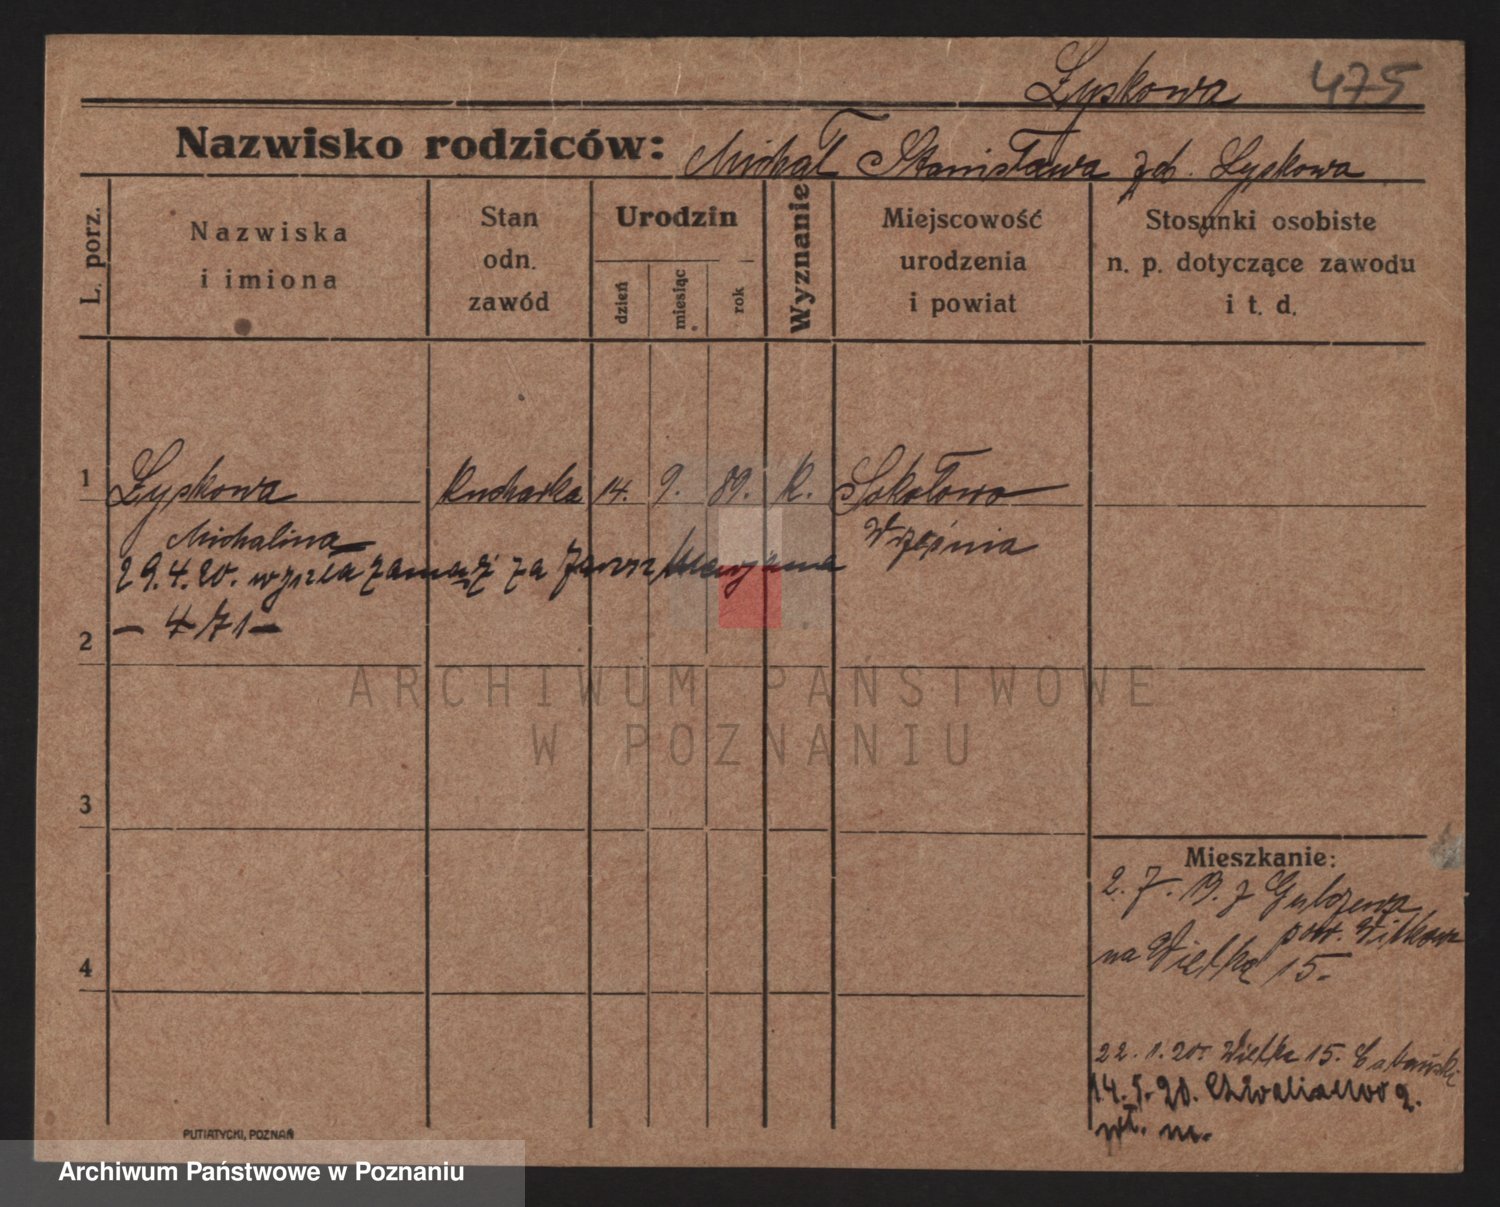 Łyskowa 475
Nazwisko rodziców: Michał Stanisława zd. Łyskowa
L. porz.
Nazwiska
i imiona
Stan
odn.
zawód
Urodzin
dzień
miesiąc
rok
Wyznanie
Miejscowość
urodzenia
i powiat
Stosunki osobiste
n. p. dotyczące zawodu
i t. d.
1 Łyskowa Kucharka 14. 9. 89. K. Sokołowo
Michalina Września
29.4.20. wyszła zamąż za
– 471 –
2
3
4
Mieszkanie:
2. 7. 19. z
pow. Witkowo
na Wielką 15.
22. 1. 20. Wielka 15.
14. 5. 20. Chwaliszewo 2.
wł. m.
ARCHIWUM PAŃSTWOWE
W POZNANIU
PUTIATYCKI, POZNAŃ
Archiwum Państwowe w Poznaniu